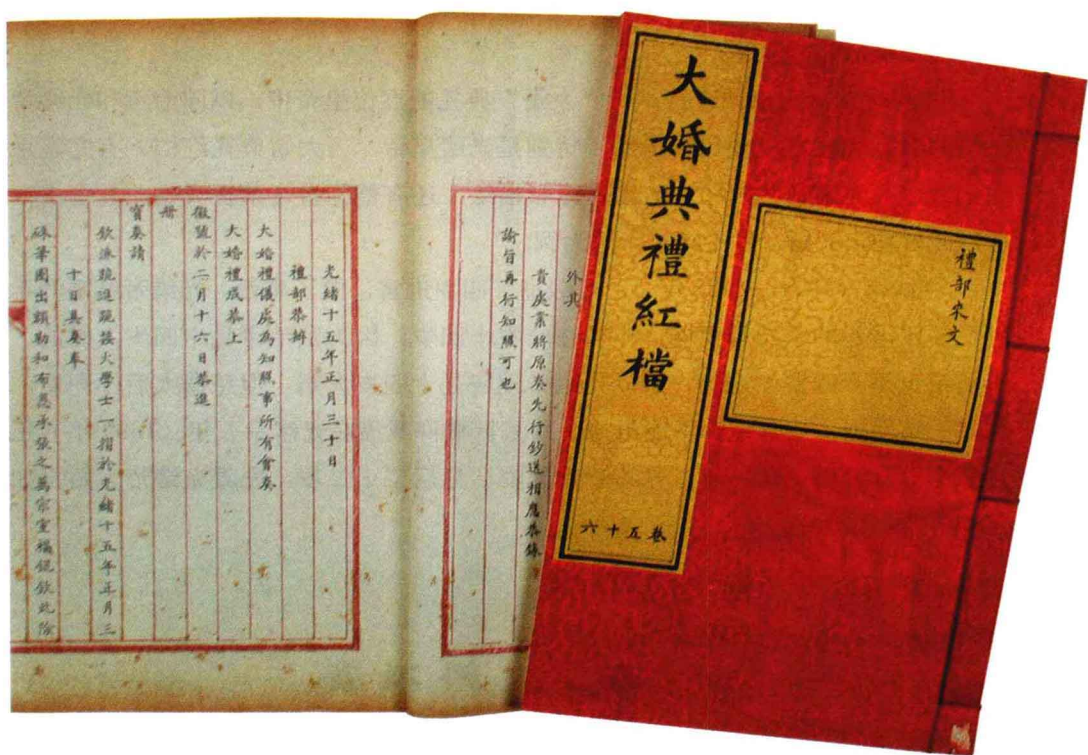 大婚典禮紅檔
卷五十六
禮部來文
外其
貴處業將原奏先行鈔送相應恭錄
諭旨再行知照可也
光緒十五年正月三十日
禮部恭辦
大婚禮儀處為知照事所有會奏
大婚禮成恭上
徽號於二月十六日恭進
冊
寶奏請
欽派跪進跪接大學士一摺於光緒十五年正月三
十日具奏奉
硃筆圈出額勒和布恩承張之萬宗室福錕欽此除